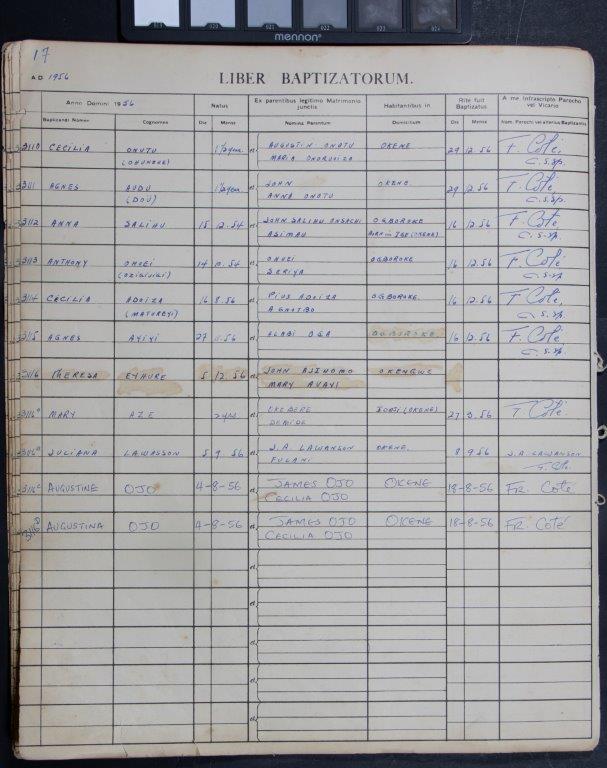 mennon
17
A.D. 1956
LIBER BAPTIZATORUM.
Anno Domini 1956 Natus Ex parentibus legitimo Matrimonio junctis Habitantibus in Rite fuit Baptizatus A me Infrascripto Parocho vel Vicario
Baptizandi Nomen Cognomen Die Mense Nomina Parentum Domicilium Die Mense Nom. Parochi vel alterius Baptizantis
3110 CECILIA ONUTU 1½ year et. AUGUSTIN ONOTU OKENE 29 12.56 F. Coté,
(OHUNENE) MARIA ONORUOIZA C.S.Sp.
3111 AGNES AUDU 1½ year et. JOHN OKENE 29 12.56 F. Coté
(DOU) ANNA ONOTU C.S.Sp.
3112 ANNA SALIHU 15 12.54 et. JOHN SALIHU ONSACHI OGBOROKE 16 12.56 F. Coté
ASIMAU (OKENE) C.S.Sp.
3113 ANTHONY ONUEI 14 10.54 et. ONUEI OGBOROKE 16 12.56 F. Coté
SERIYA C.S.Sp.
3114 CECILIA ADOIZA 16 8.56 et. PIUS ADOIZA OGBOROKE 16 12.56 F. Coté,
(MATOREYI) C.S.Sp.
3115 AGNES AYIYI 27 et. ALABI OGA OGBOROKE 16 12.56 F. Coté
C.S.Sp.
3116 THERESA EYHURE 5 12.56 et. JOHN ASIHOMO OKENGWE
MARY AVAYI
3116 MARY AZE et. (OKENE) 27 9.56 F. Coté
3116 JULIANA LAWASSON 5 9 56 et. J.A. LAWANSON OKENE 8 9 56 J.A. LAWANSON
FULANI
3116 C AUGUSTINE OJO 4-8-56 et. JAMES OJO OKENE 18-8-56 FR. Coté
CECILIA OJO
3116 D AUGUSTINA OJO 4-8-56 et. JAMES OJO OKENE 18-8-56 FR. Coté
CECILIA OJO
et.
et.
et.
et.
et.